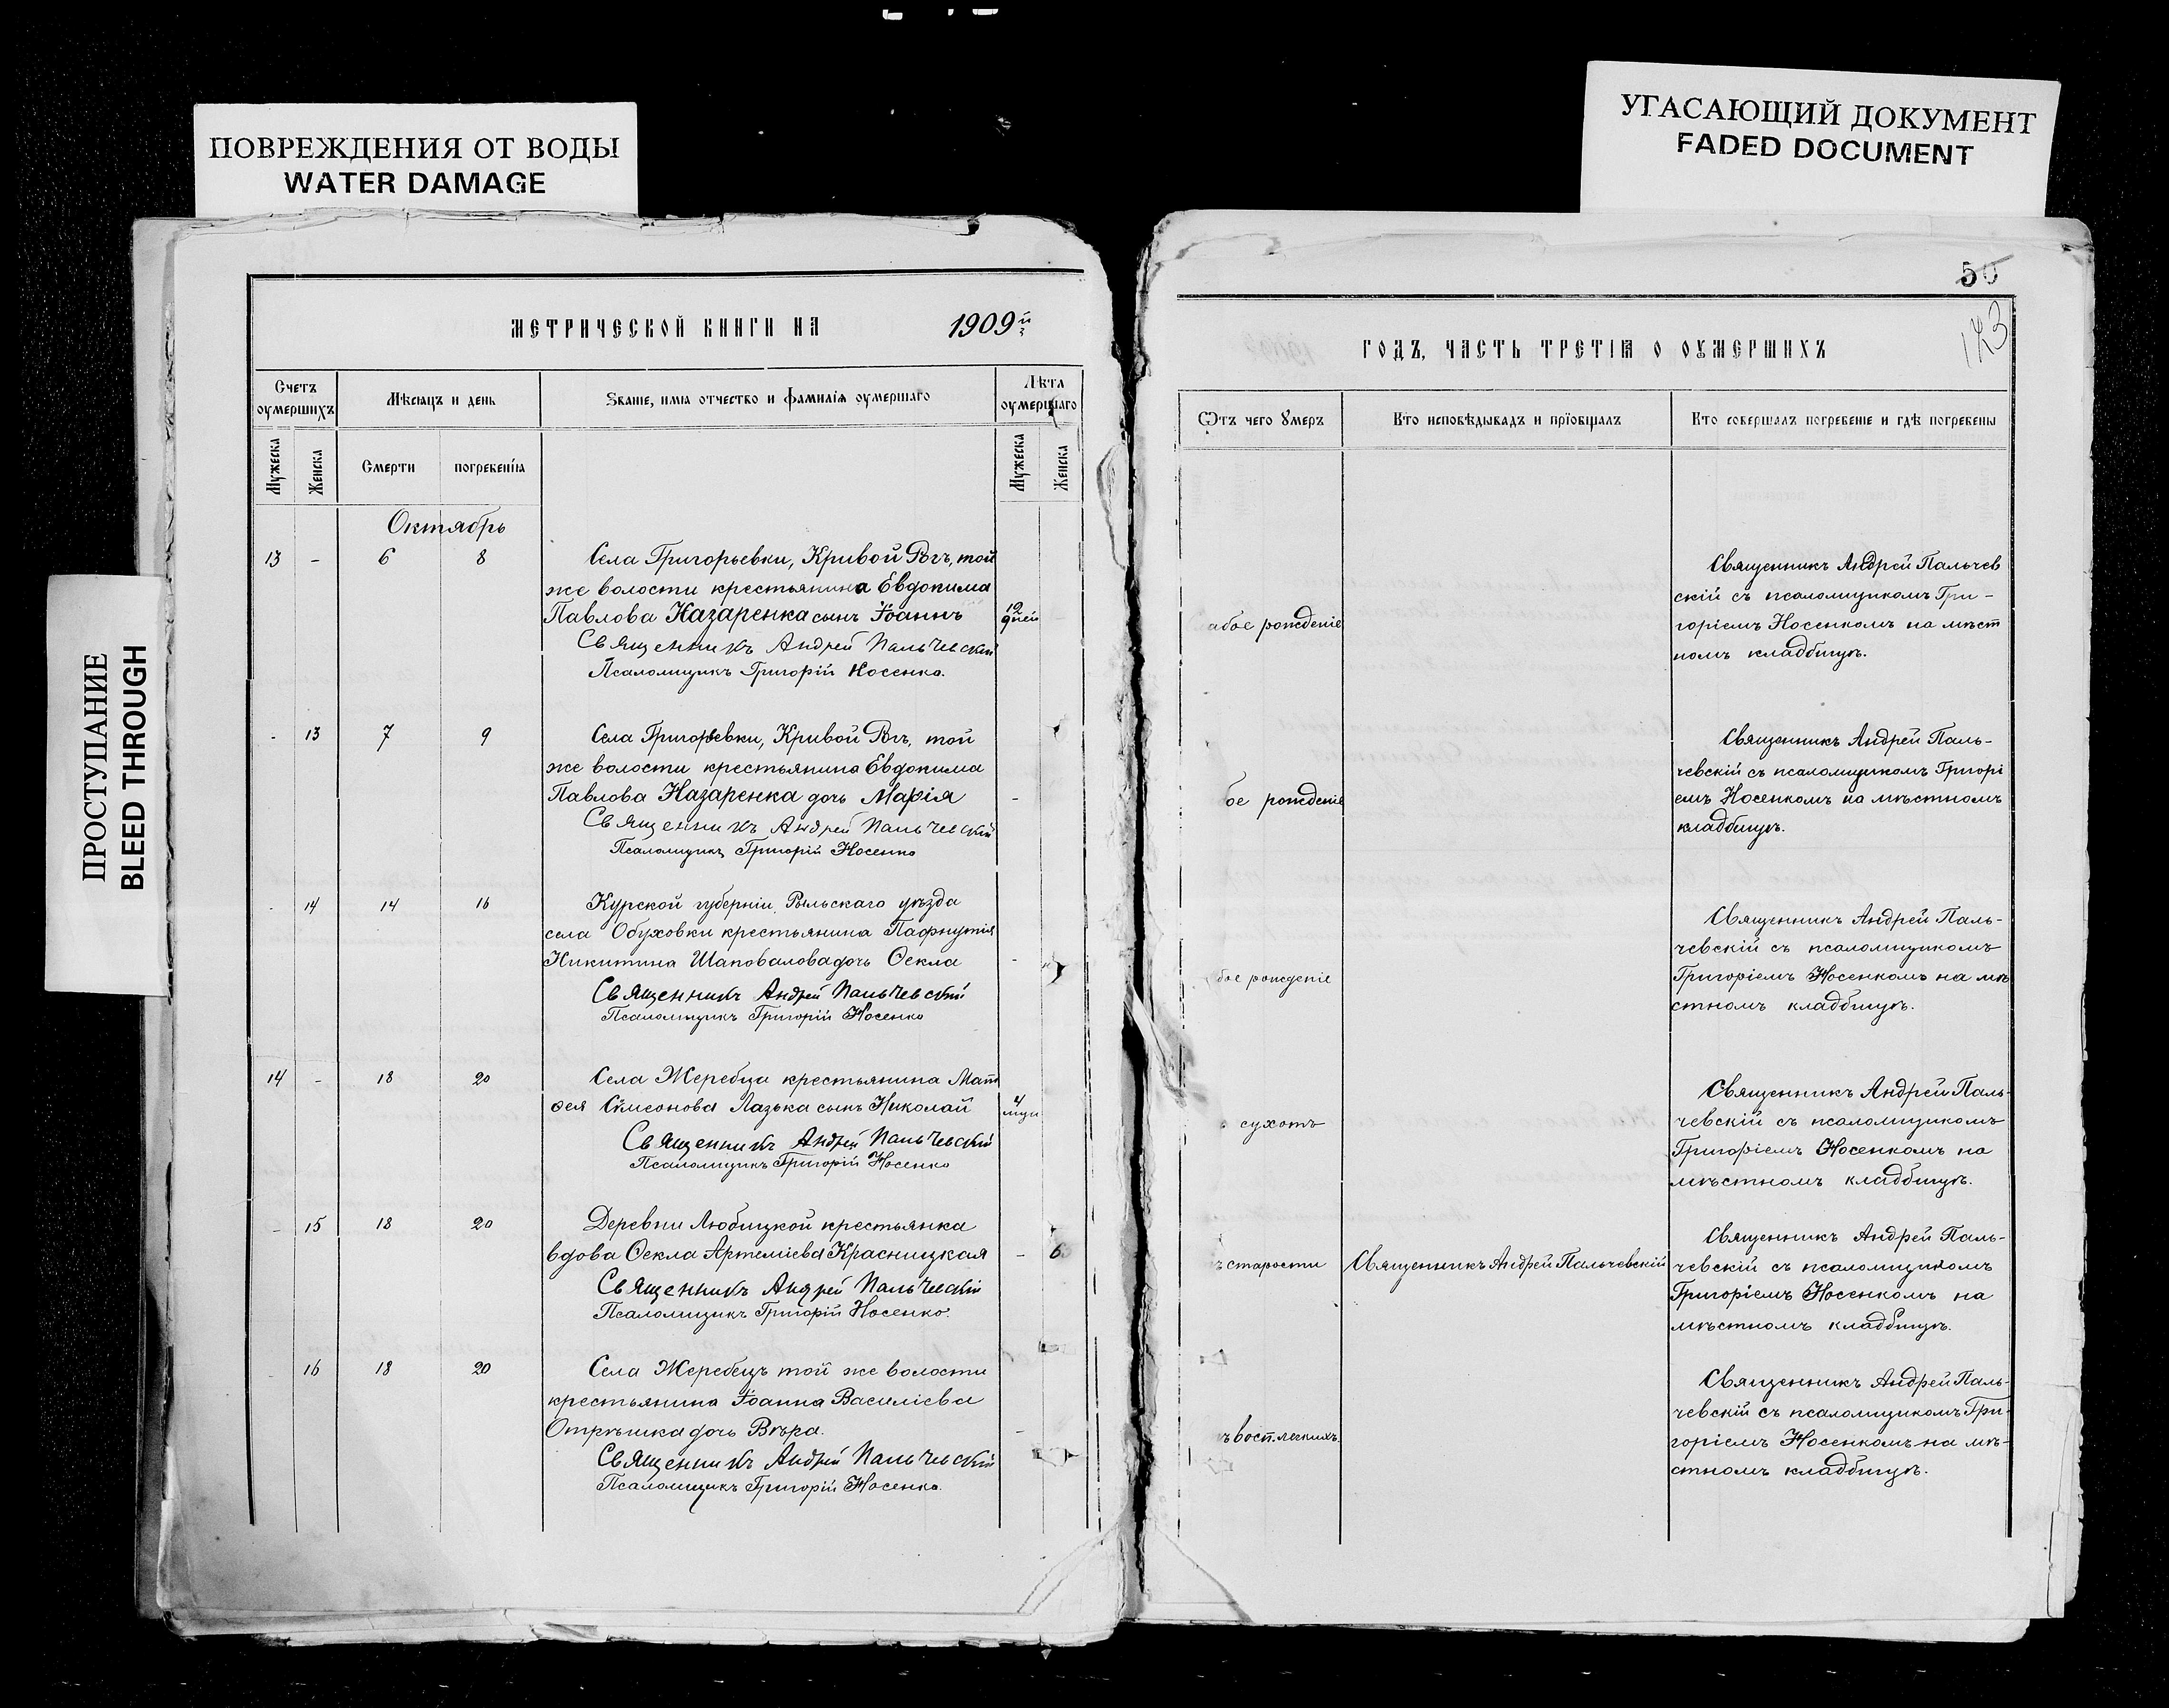 ПОВРЕЖДЕНИЯ ОТ ВОДЫ
WATER DAMAGE
УГАСАЮЩИЙ ДОКУМЕНТ
FADED DOCUMENT
ПРОСТУПАНИЕ
BLEED THROUGH
МЕТРИЧЕСКОЙ КНИГИ НА 1909й
Счетъ оумершихъ
Мѣсяцъ и день
Званіе, имя отчество и фамилія оумершаго
Лѣта оумершаго
Мужеска
Женска
Смерти
погребенія
Мужеска
Женска
Октябрь
13 - 6 8 Села Григорьевки, Кривой Рогъ, той
же волости крестьянина Евдокима
Павлова Назаренка сынъ Іоаннъ 12 дней
Священникъ Андрей Пальчевскій
Псаломщикъ Григорій Носенко.
- 13 7 9 Села Григорьевки, Кривой Рогъ, той
же волости крестьянина Евдокима
Павлова Назаренка дочь Марія -
Священникъ Андрей Пальчевскій
Псаломщикъ Григорій Носенко
- 14 14 16 Курской губерніи, Рыльскаго уѣзда
села Обуховки крестьянина Пафнутія
Никитина Шаповалова дочь Ѳекла -
Священникъ Андрей Пальчевскій
Псаломщикъ Григорій Носенко
14 - 18 20 Села Жеребца крестьянина Мат
ѳея Сѵмеонова Лазька сынъ Николай
Священникъ Андрей Пальчевскій
Псаломщикъ Григорій Носенко
- 15 18 20 Деревни Любицкой крестьянка
вдова Ѳекла Артеміева Красницкая - 6
Священникъ Андрей Пальчевскій
Псаломщикъ Григорій Носенко.
- 16 18 20 Села Жеребецъ той же волости
крестьянина Іоанна Василіева
Отрѣшка дочь Вѣра. -
Священникъ Андрей Пальчевскій
Псаломщикъ Григорій Носенко.
50
ГОДЪ, ЧАСТЬ ТРЕТІЯ О ОУМЕРШИХЪ
Ѿтъ чего умеръ
Кто исповѣдывалъ и пріобщалъ
Кто совершалъ погребеніе и гдѣ погребены
Священникъ Андрей Пальчев
скій съ псаломщикомъ Гри-
абое рожденіе горіемъ Носенкомъ на мѣст
номъ кладбищѣ.
Священникъ Андрей Паль-
чевскій съ псаломщикомъ Григорі
бое рожденіе емъ Носенкомъ на мѣстномъ
кладбищѣ.
Священникъ Андрей Паль-
чевскій съ псаломщикомъ
бое рожденіе Григоріемъ Носенкомъ на мѣ
стномъ кладбищѣ.
Священникъ Андрей Паль-
сухотъ чевскій съ псаломщикомъ
Григоріемъ Носенкомъ на
мѣстномъ кладбищѣ.
Священникъ Андрей Паль-
ъ старости Священникъ Андрей Пальчевскій чевскій съ псаломщикомъ
Григоріемъ Носенкомъ на
мѣстномъ кладбищѣ.
Священникъ Андрей Паль-
чевскій съ псаломщикомъ Гри-
ъ восп. легкихъ. горіемъ Носенкомъ на мѣ-
стномъ кладбищѣ.